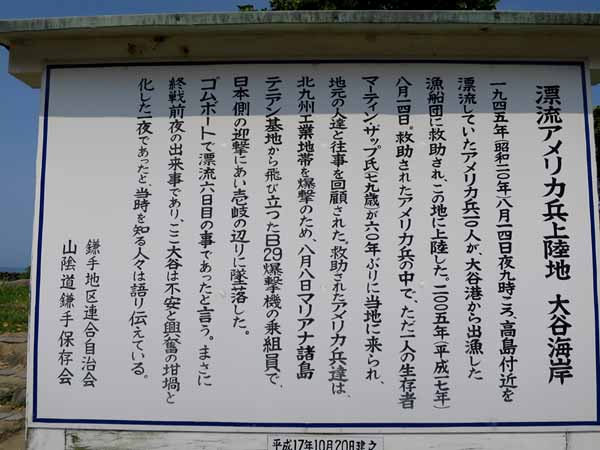 漂流アメリカ兵上陸地　大谷海岸
一九四五年(昭和二〇年)八月一四日夜九時ころ、高島付近を
漂流していたアメリカ兵一〇人が、大谷港から出漁した
漁船団に救助され、この地に上陸した。二〇〇五年(平成一七年)
八月一四日。救助されたアメリカ兵の中で、ただ一人の生存者
マーティン・ザップ氏(七九歳)が六〇年ぶりに当地に来られ、
地元の人達と往事を回顧された。救助されたアメリカ兵達は、
北九州工業地帯を爆撃のため、八月八日マリアナ諸島
テニアン基地から飛び立ったB29爆撃機の乗組員で、
日本側の迎撃にあい壱岐の辺りに墜落した。
ゴムボートで漂流六日目の事であったと言う。まさに
終戦前夜の出来事であり、ここ大谷は不安と興奮の坩堝と
化した一夜であったと、当時を知る人々は語り伝えている。
鎌手地区連合自治会
山陰道鎌手保存会
平成17年10月20日建之